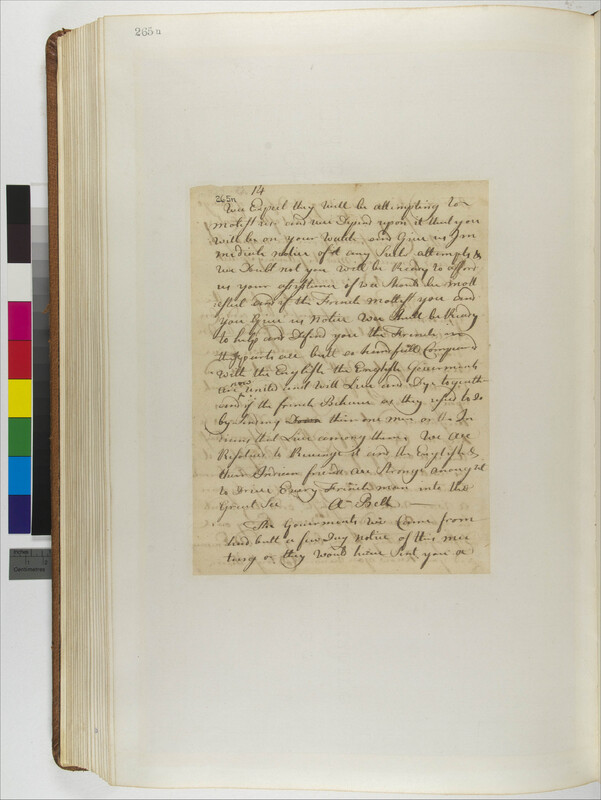 265n
14
265n
We Expect they Will be attempting to
molest us and wee Depend upon it that you
will be on your Watch and Give us Im
mediate notice of any Such attempts &
we Doubt not you Will be Ready to afford
us your assistance if we Should be molt
ested and if the French Mollest you and
you Give us Notice Wee Shall be Ready
to help and Defend you the French in
these parts are butt a handfull Compared
With the English the English Goverments
are now united and Will Live and Dye togeather
and if the french Behave as they used to do
by Sending their one men or the In
dians that Live among them We are
Resolved to Revenge it and the English &
their Indian friends are Strong anough
to Drive Every French man into the
Great Sea A Belt
The Goverments We Come from
had butt a few Day notice of this mee
ting or they Would have Sent you a